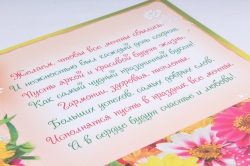 Желаем, чтобы все мечты сбылись,
И нежностью был каждый день согрет.
Пусть яркой и красивой будет жизнь,
Как самый чудный праздничный букет!
Гармонии, здоровья, теплоты,
Больших успехов, самых добрых слов.
Исполнятся пусть в праздник все мечты,
А в сердце будут счастье и любовь!